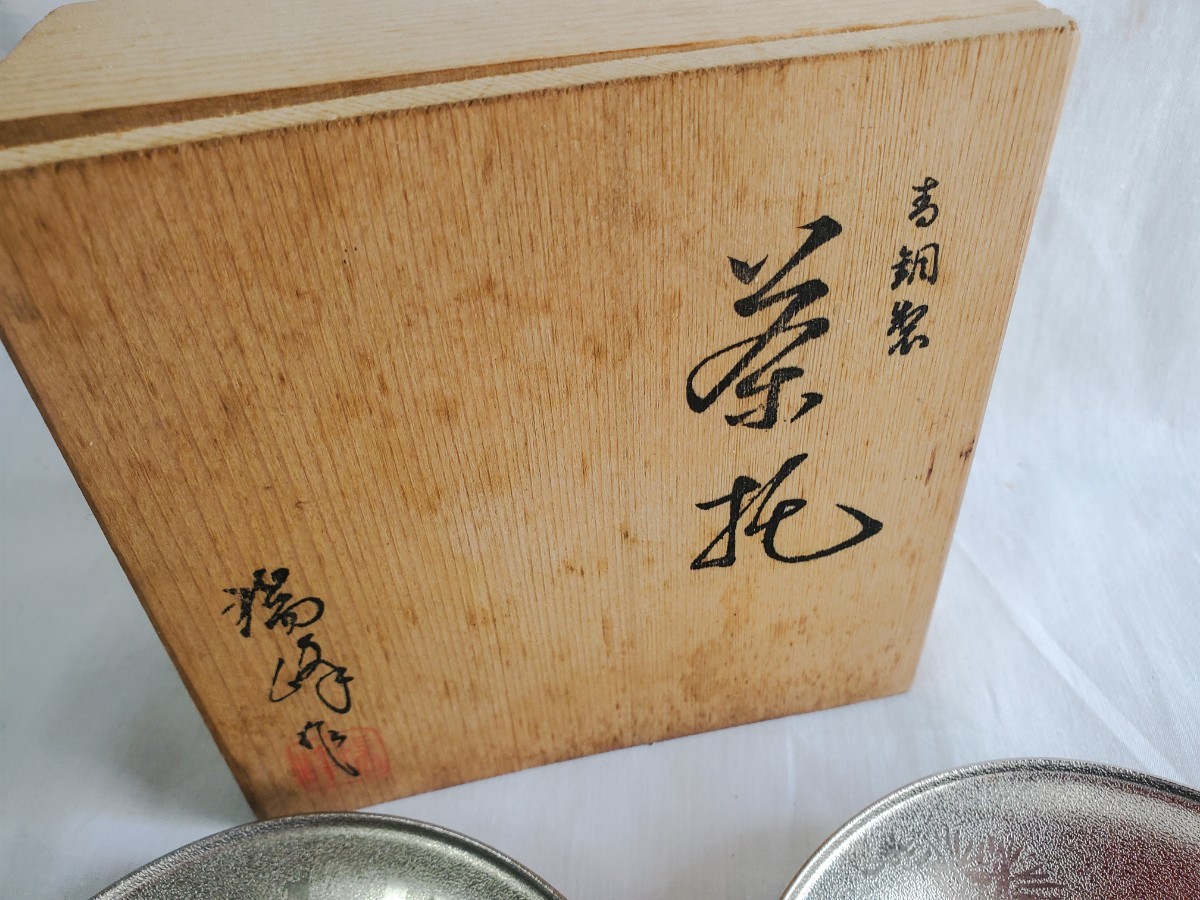 青銅製
茶托
瑞峰作